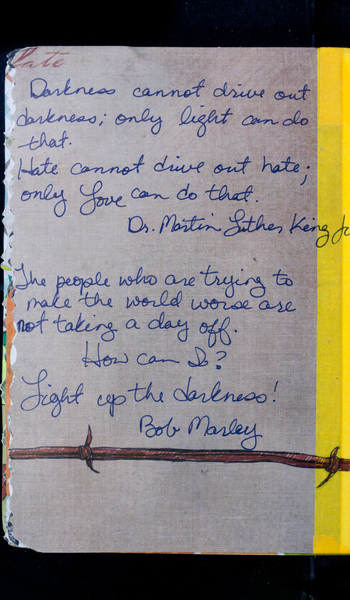 Hate
Darkness cannot drive out
darkness; only light can do
that.
Hate cannot drive out hate;
only Love can do that.
Dr. Martin Luther King Jr
The people who are trying to
make the world worse are
not taking a day off.
How can I?
Light up the darkness!
Bob Marley